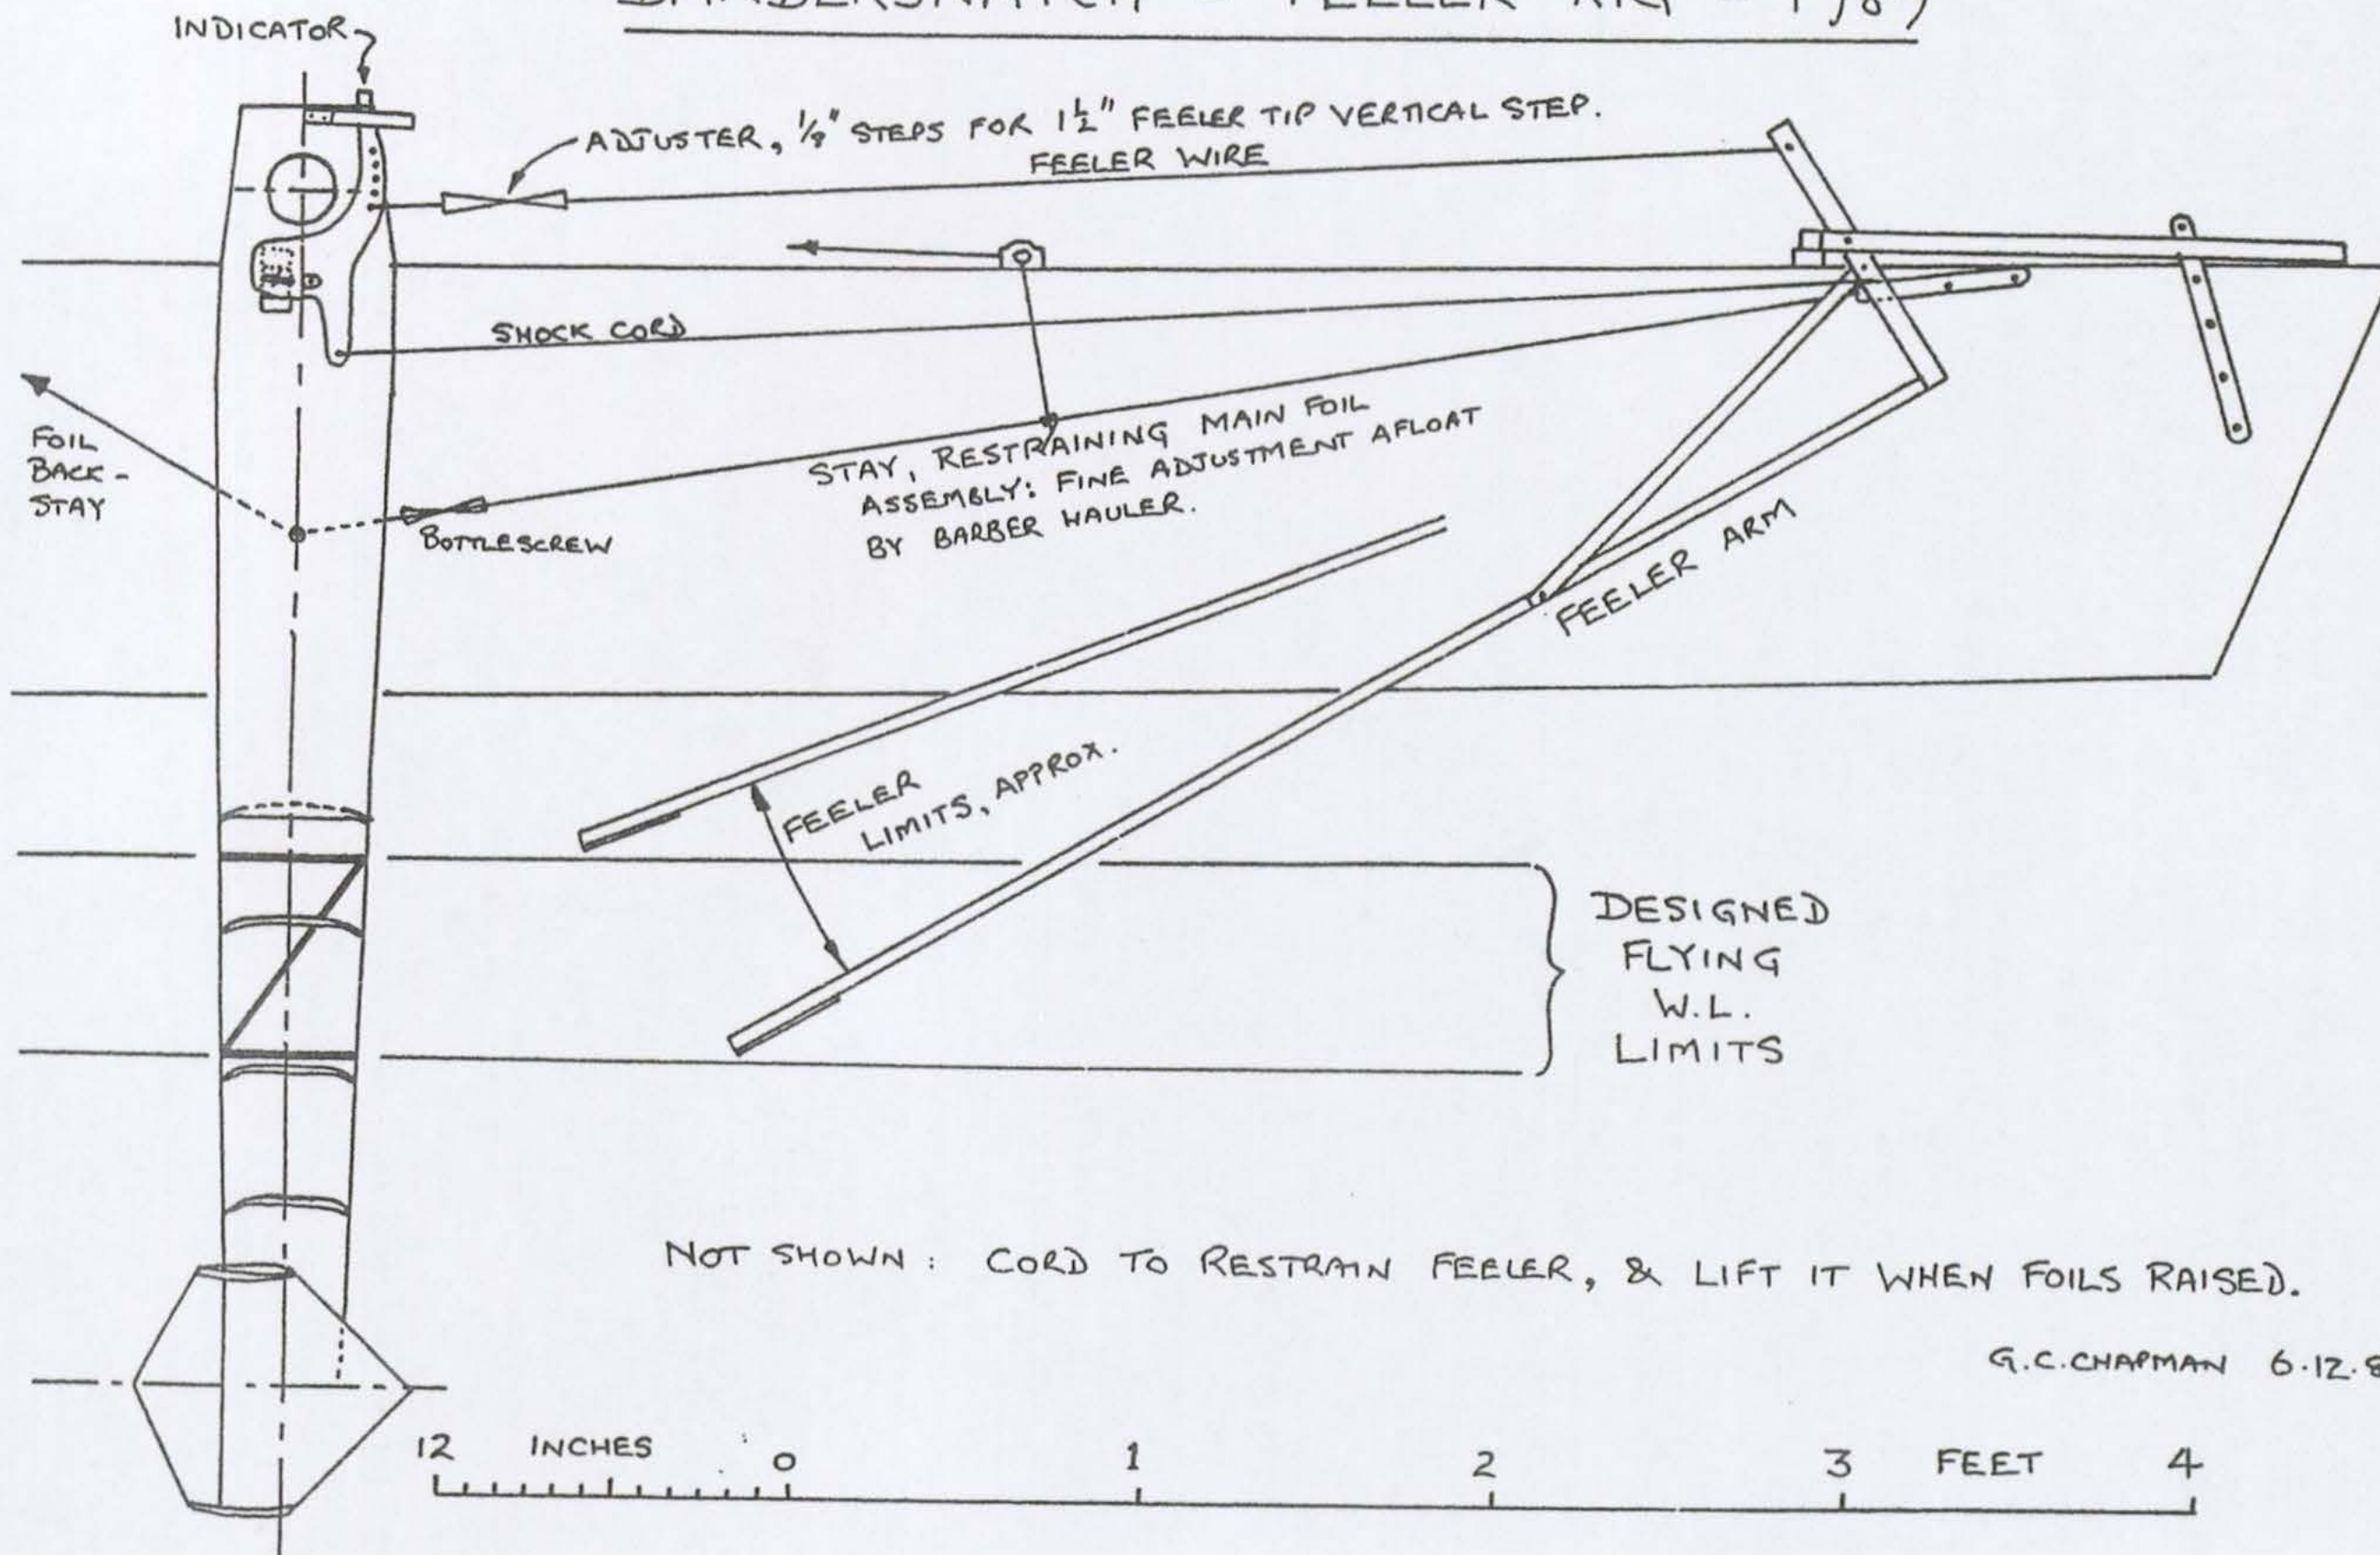 BANDERSNATCH - FEELER RIG - 1987
INDICATOR
ADJUSTER, 1/8" STEPS FOR 1 1/2" FEELER TIP VERTICAL STEP.
FEELER WIRE
SHOCK CORD
FOIL
BACK-
STAY
STAY, RESTRAINING MAIN FOIL
ASSEMBLY: FINE ADJUSTMENT AFLOAT
BY BARBER HAULER.
BOTTLESCREW
FEELER ARM
FEELER
LIMITS, APPROX.
DESIGNED
FLYING
W.L.
LIMITS
NOT SHOWN: CORD TO RESTRAIN FEELER, & LIFT IT WHEN FOILS RAISED.
G.C.CHAPMAN 6.12.8
12 INCHES 0 1 2 3 FEET 4